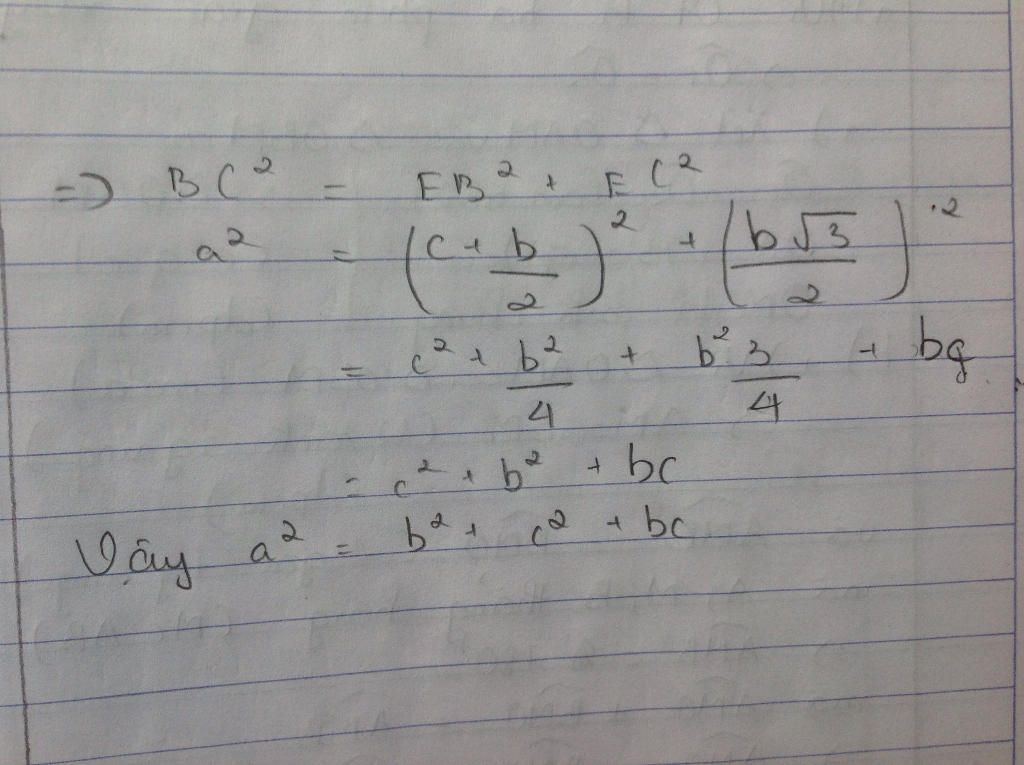 => BC² = EB² + EC²
a² = (c + b/2)² + (b√3/2)²
= c² + b²/4 + b²3/4 + bc
= c² + b² + bc
Vậy a² = b² + c² + bc